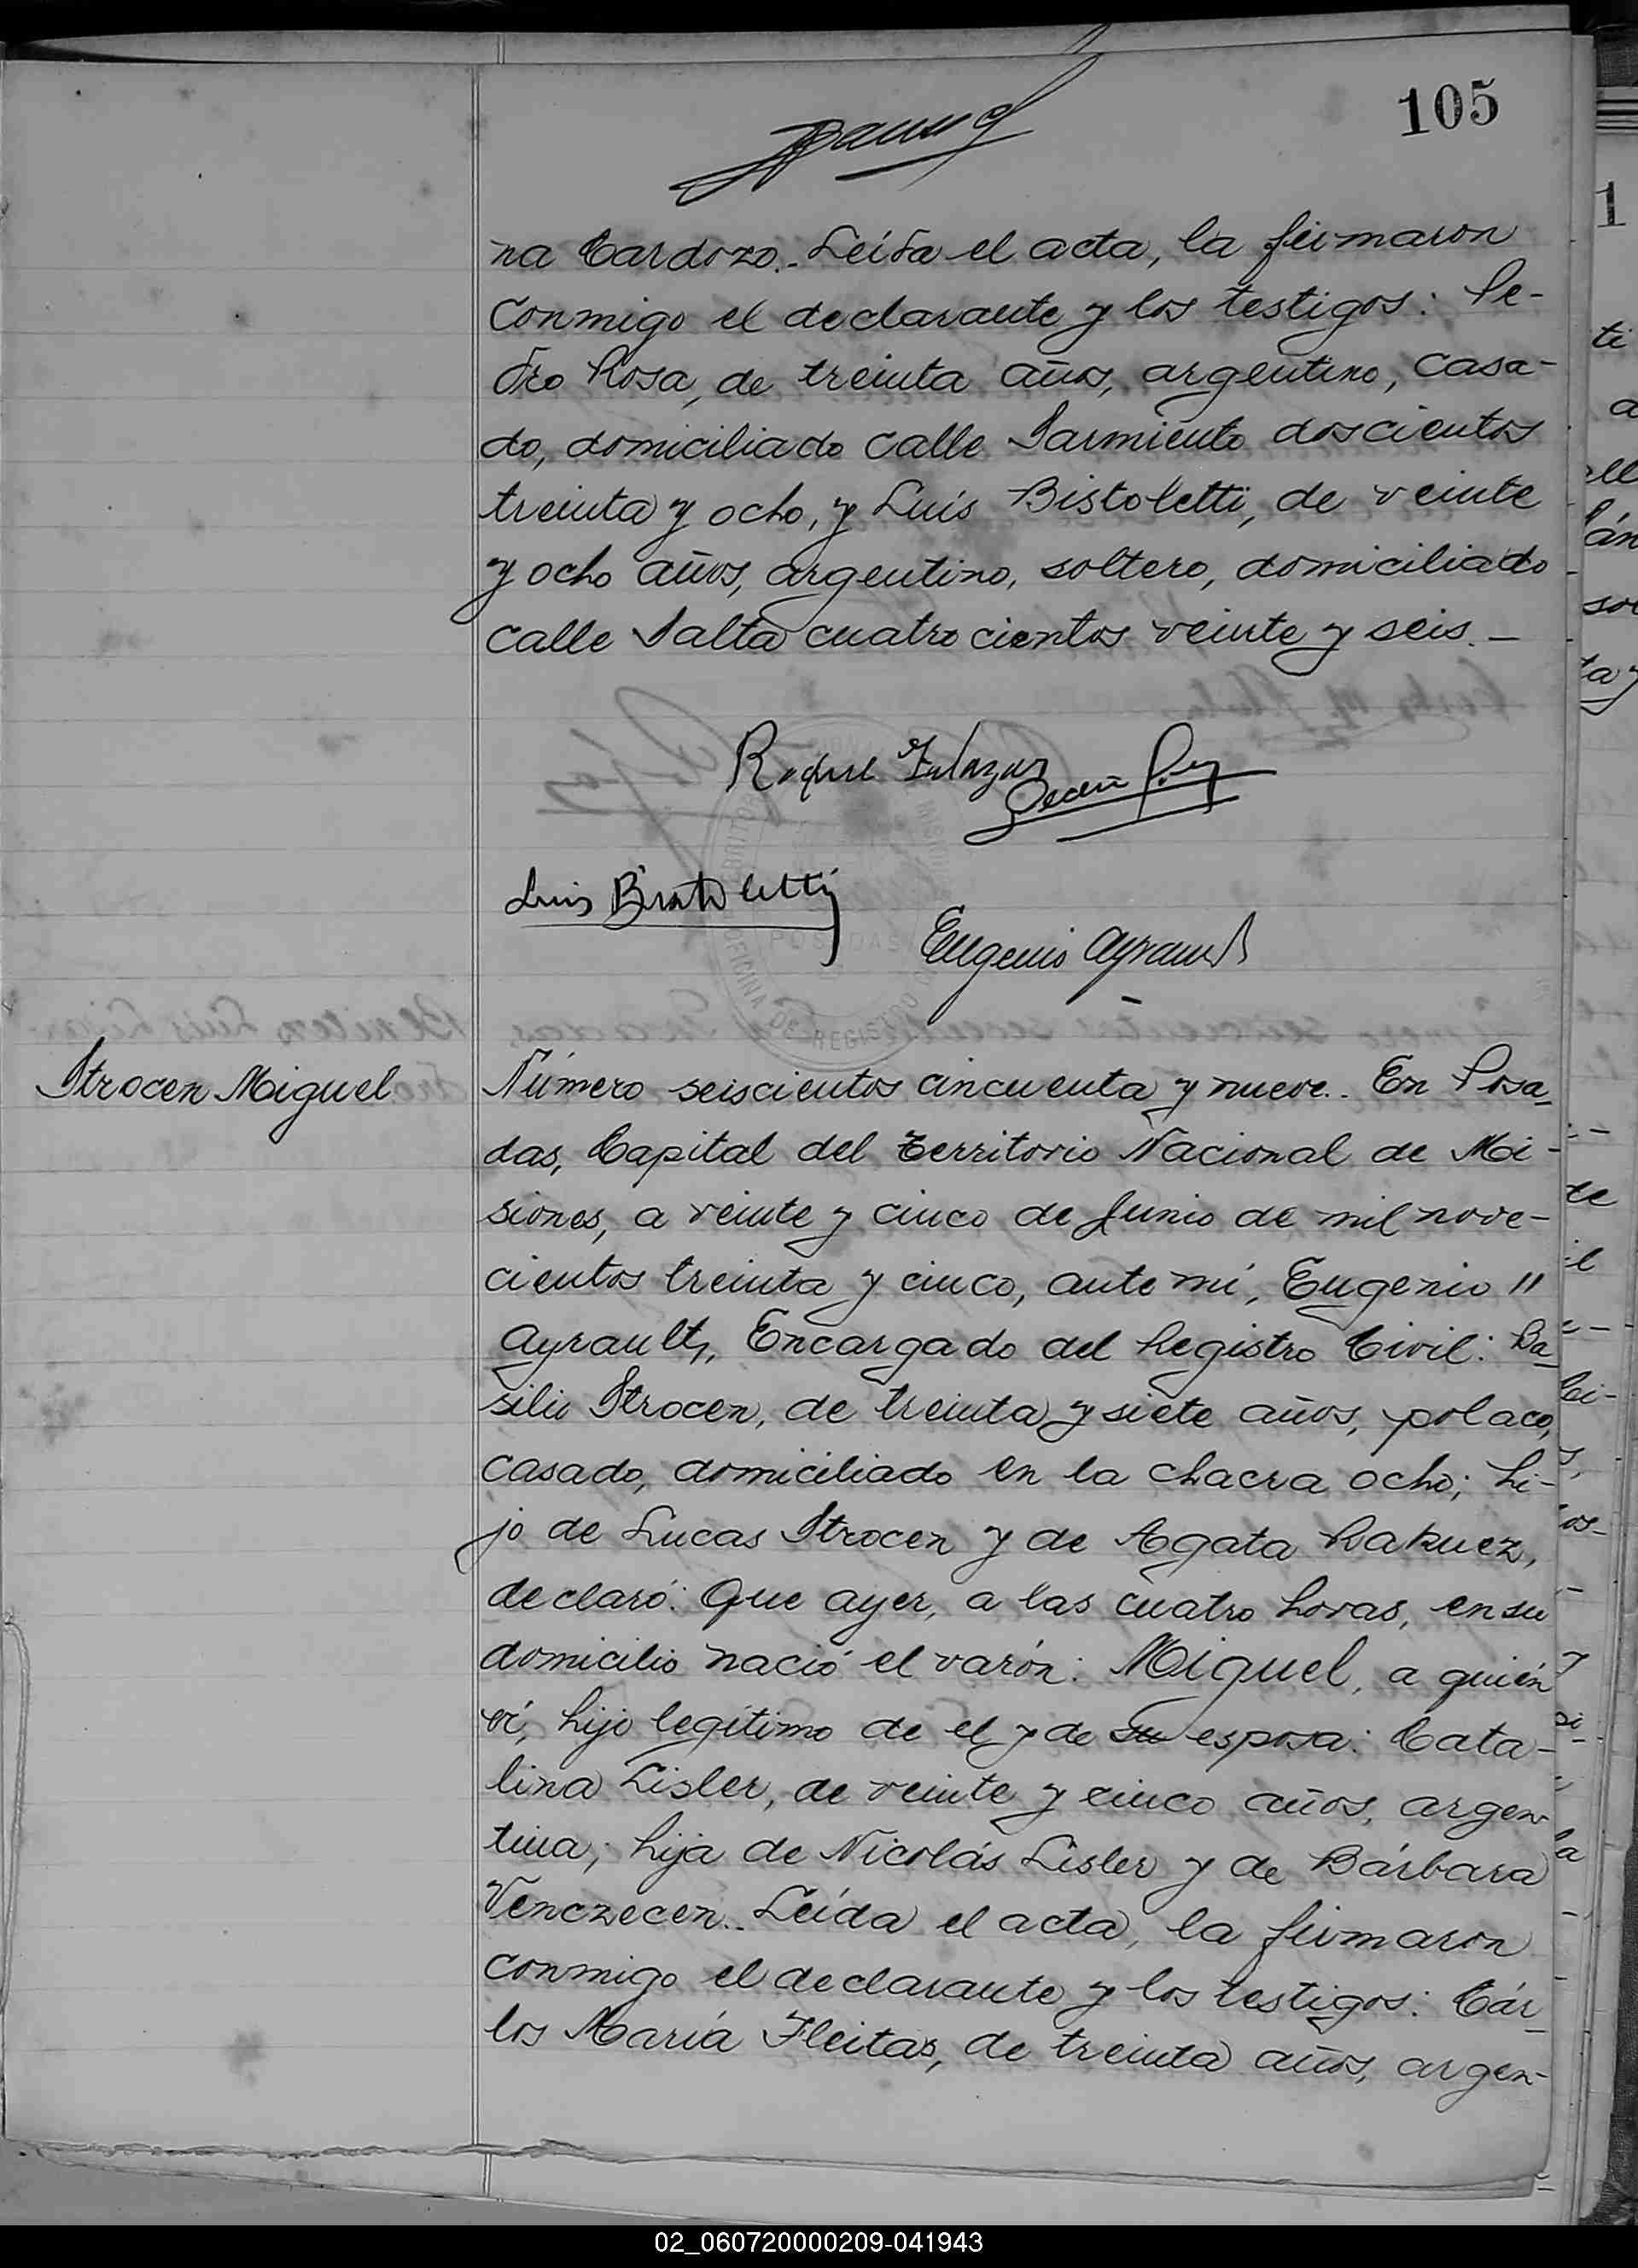 105
na Cardozo.- Leída el acta, la firmaron
conmigo el declarante y los testigos: Pe-
dro Rosa, de treinta años, argentino, casa-
do, domiciliado calle Sarmiento doscientos
treinta y ocho, y Luis Bistoletti, de veinte
y ocho años, argentino, soltero, domiciliado
calle Salta cuatrocientos veinte y seis.-
Roque
Luis Bistoletti
Eugenio Ayrault
POSADAS
OFICINA DE REGISTRO
Strocen Miguel
Número seiscientos cincuenta y nueve.. En Posa-
das, Capital del Territorio Nacional de Mi-
siones, a veinte y cinco de Junio de mil nove-
cientos treinta y cinco, ante mí, Eugenio "
Ayrault, Encargado del Registro Civil: Ba-
silio Strocen, de treinta y siete años, polaco,
casado, domiciliado en la chacra ocho; hi-
jo de Lucas Strocen y de Agata Rakuez,
declaró: Que ayer, a las cuatro horas, en su
domicilio nació el varón: Miguel, a quién
ví, hijo legítimo de el y de su esposa: Cata-
lina Lisler, de veinte y cinco años, argen-
tina; hija de Nicolás Lisler y de Bárbara
Venczecen.. Leída el acta, la firmaron
conmigo el declarante y los testigos: Cár-
los María Fleitas, de treinta años, argen-
02_060720000209-041943